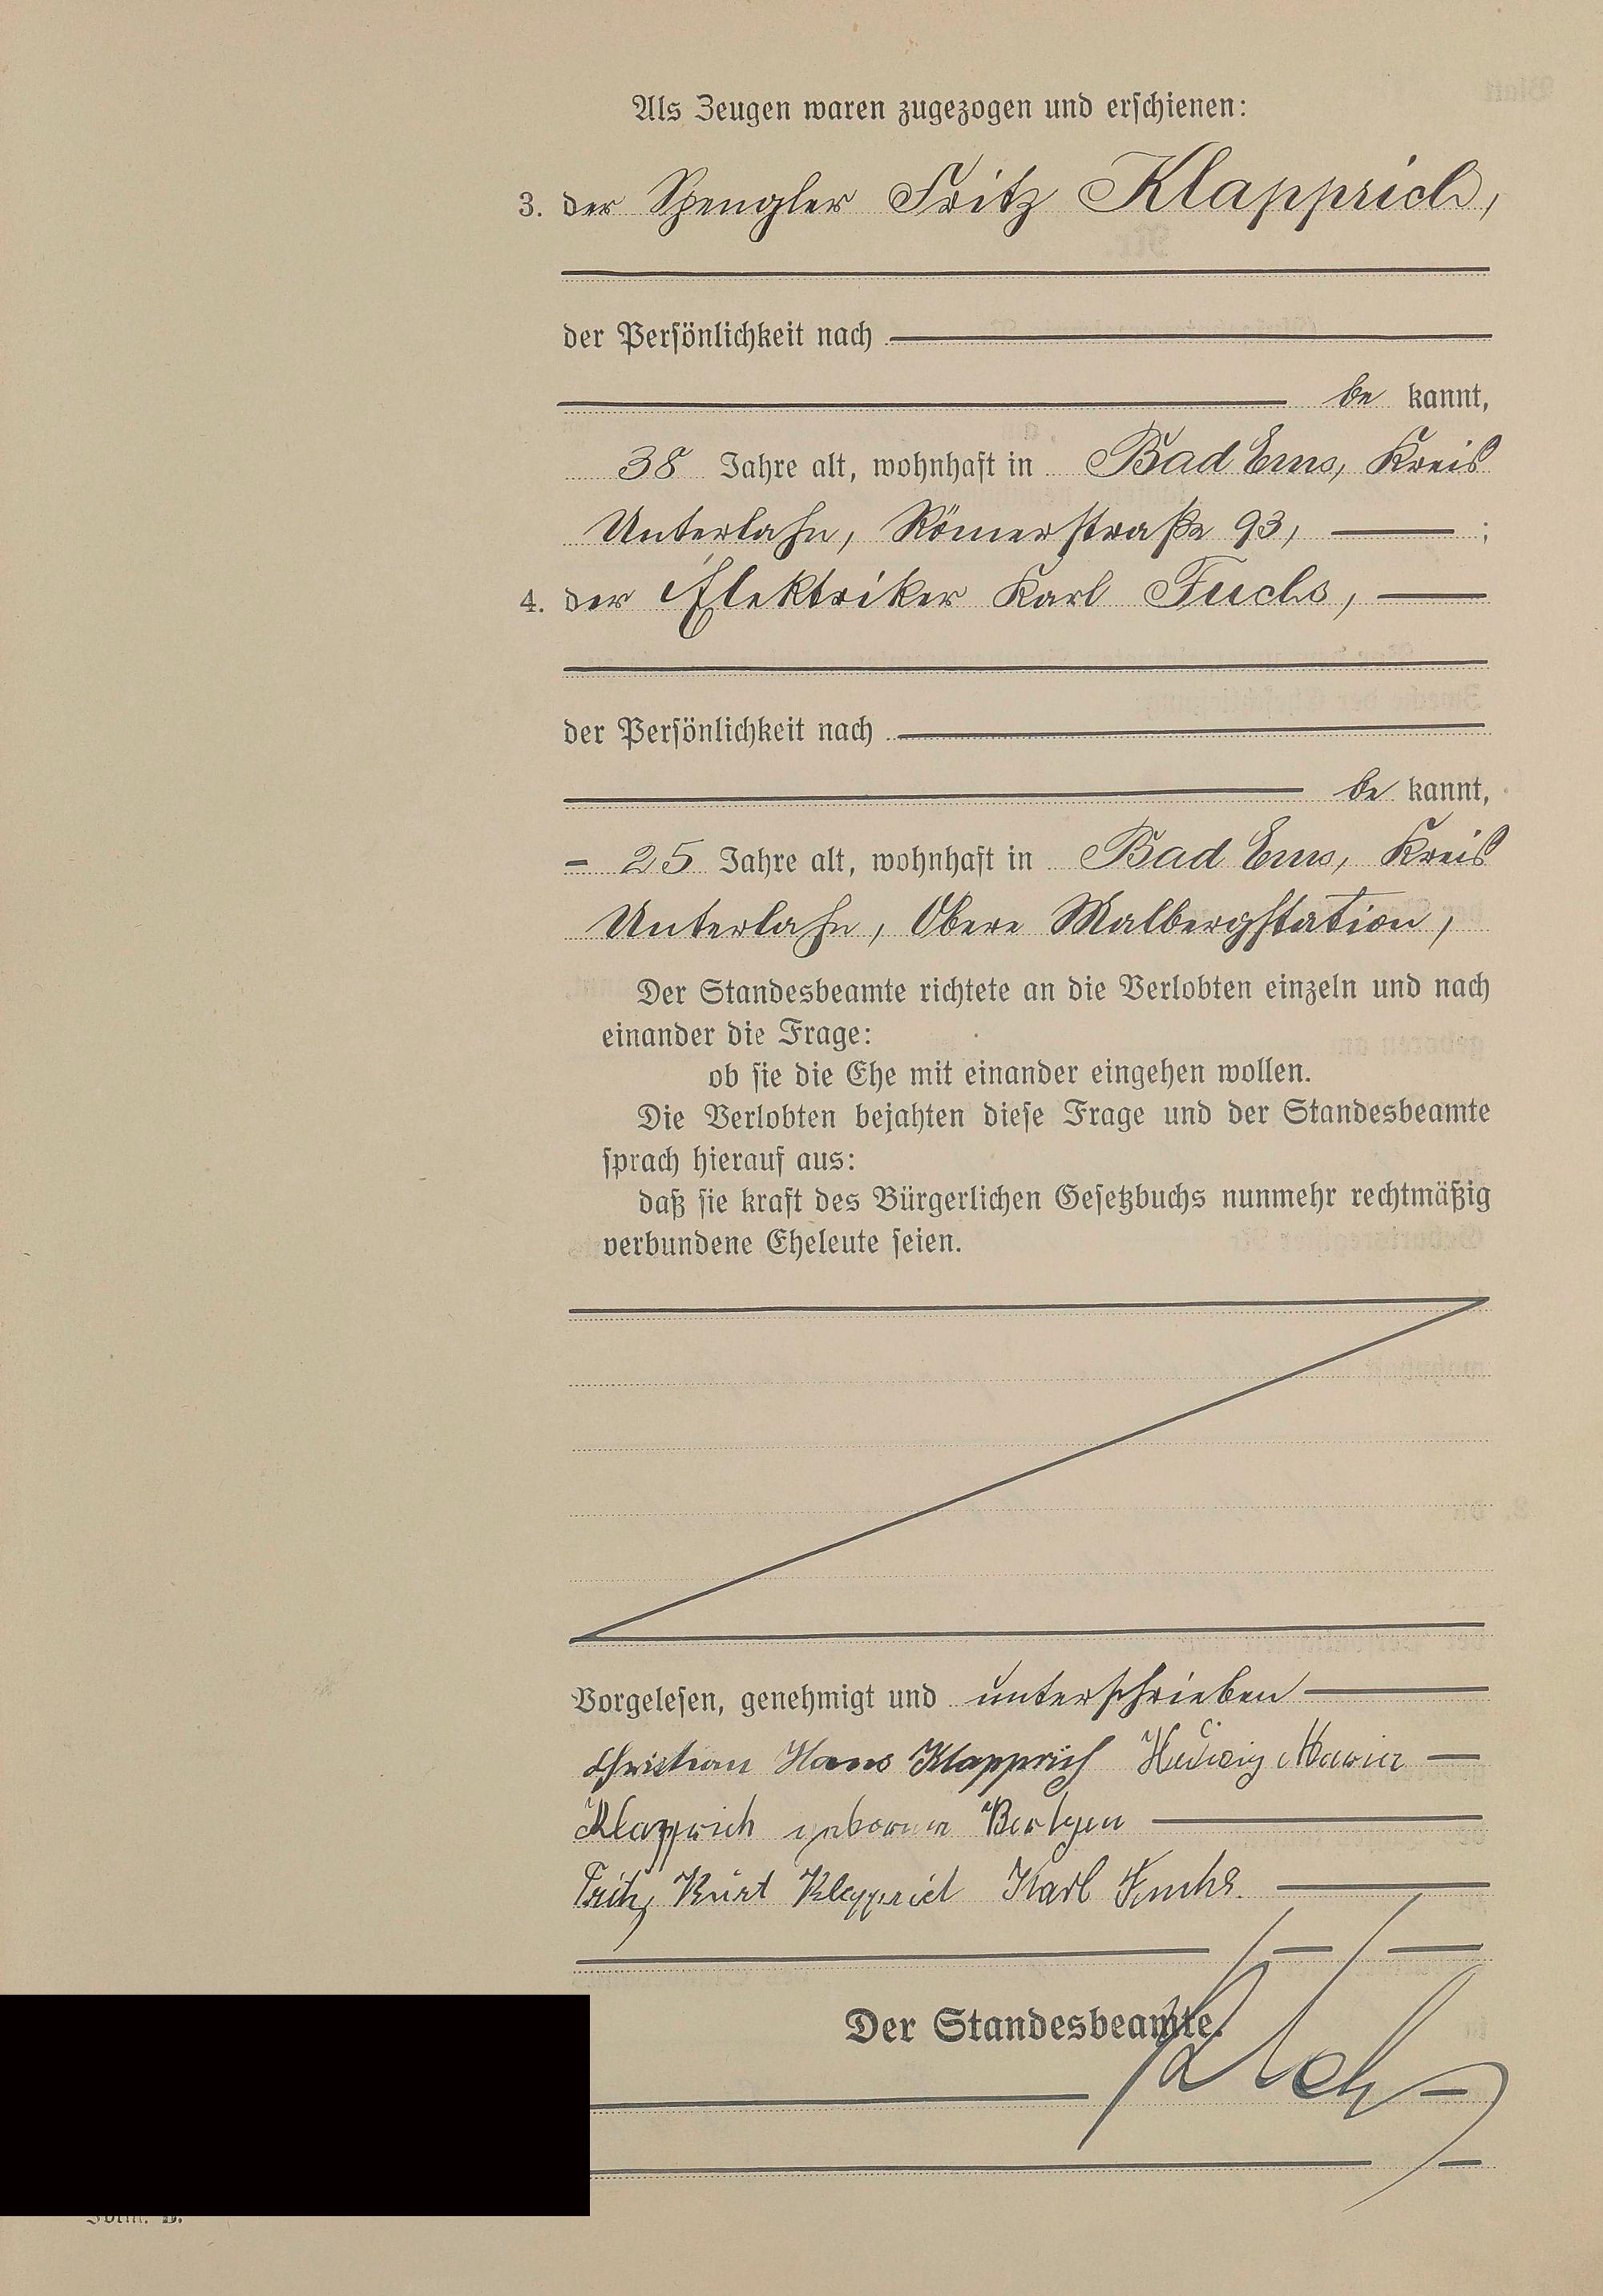 Als Zeugen waren zugezogen und erschienen:
3. der Spengler Fritz Klapprich,
der Persönlichkeit nach
be kannt,
38 Jahre alt, wohnhaft in Bad Ems, Kreis
Unterlahn, Römerstraße 93, ;
4. der Elektriker Karl Fuchs,
der Persönlichkeit nach
be kannt,
25 Jahre alt, wohnhaft in Bad Ems, Kreis
Unterlahn, Obere Malbergstation,
Der Standesbeamte richtete an die Verlobten einzeln und nach
einander die Frage:
ob sie die Ehe mit einander eingehen wollen.
Die Verlobten bejahten diese Frage und der Standesbeamte
sprach hierauf aus:
daß sie kraft des Bürgerlichen Gesetzbuchs nunmehr rechtmäßig
verbundene Eheleute seien.
Vorgelesen, genehmigt und unterschrieben
Christian Hans Klapprich Hedwig Maria
Klapprich geborene
Fritz Kurt Klapprich Karl Fuchs.
Der Standesbeamte.
Form. B.